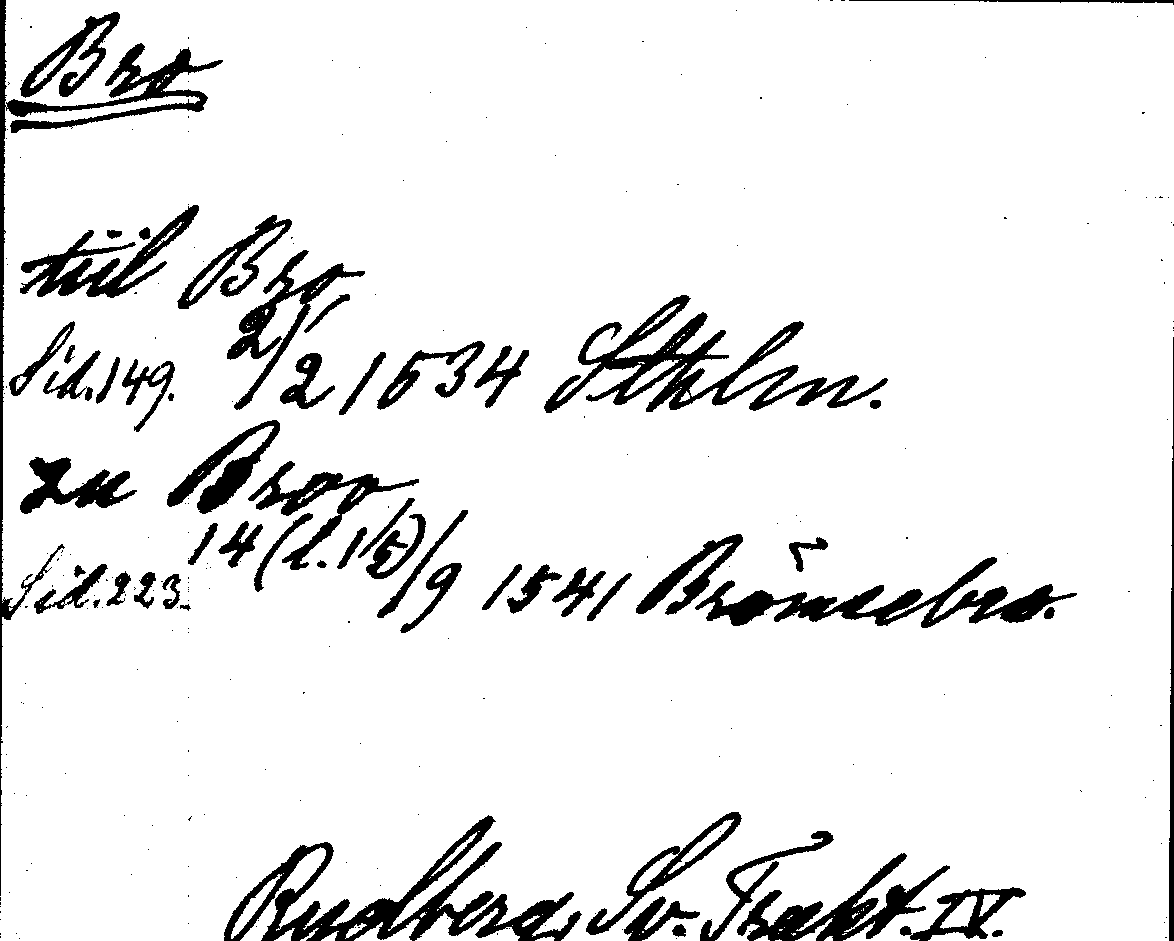 Bro
tiil Bro
Sid. 149. 2/2 1534 Sthlm.
zu Broo
Sid. 223. 14 (d. 1/5)/9 1541 Brömsebro.
Rydberg, Sv. Trakt. IV.